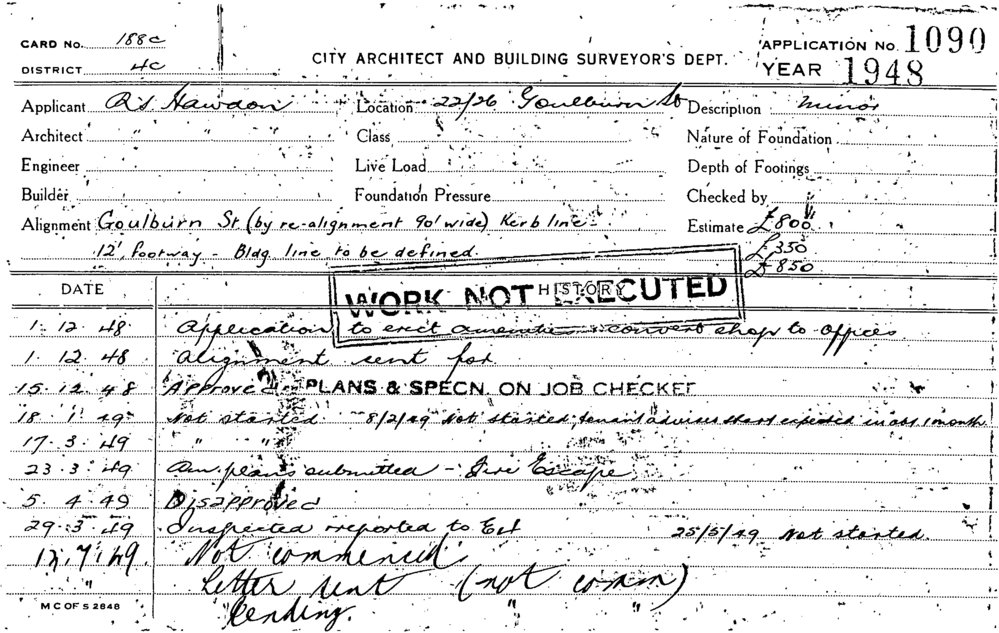 CARD No. 188c
DISTRICT 4C
CITY ARCHITECT AND BUILDING SURVEYOR'S DEPT.
APPLICATION No. 1090
YEAR 1948
Applicant R S Hawdon Location 22/26 Goulburn St Description Minor
Architect " " Class Nature of Foundation
Engineer Live Load Depth of Footings
Builder Foundation Pressure Checked by
Alignment Goulburn St (by re-alignment 90' wide) Kerb line - Estimate £800
12' footway - Bldg. line to be defined. £350
£850
DATE HISTORY
WORK NOT EXECUTED
1. 12. 48 Application to erect amenities & convert shop to offices
1. 12. 48 Alignment sent for
15. 12. 48 Approved PLANS & SPECN. ON JOB CHECKED
18. 1. 49 Not started 8/2/49 Not started tenant advises start expected in abt. 1 month
17. 3. 49 " "
23. 3. 49 Am. plans submitted - Fire Escape
5. 4. 49 Disapproved
29. 3. 49 Inspected & reported to 25/5/49 Not started.
12. 7. 49. Not commenced.
" Letter sent (not comm)
Pending. " "
M C OF S 2848